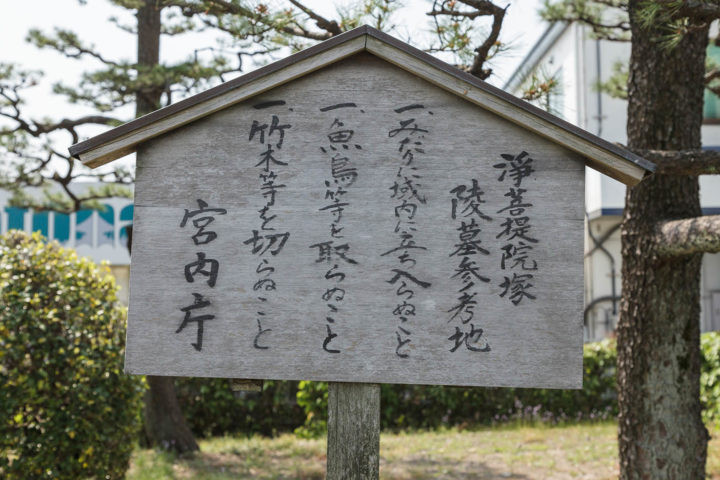 淨菩提院塚
陵墓参考地
一、みだりに域内に立ち入らぬこと
一、魚鳥等を取らぬこと
一、竹木等を切らぬこと
宮内庁